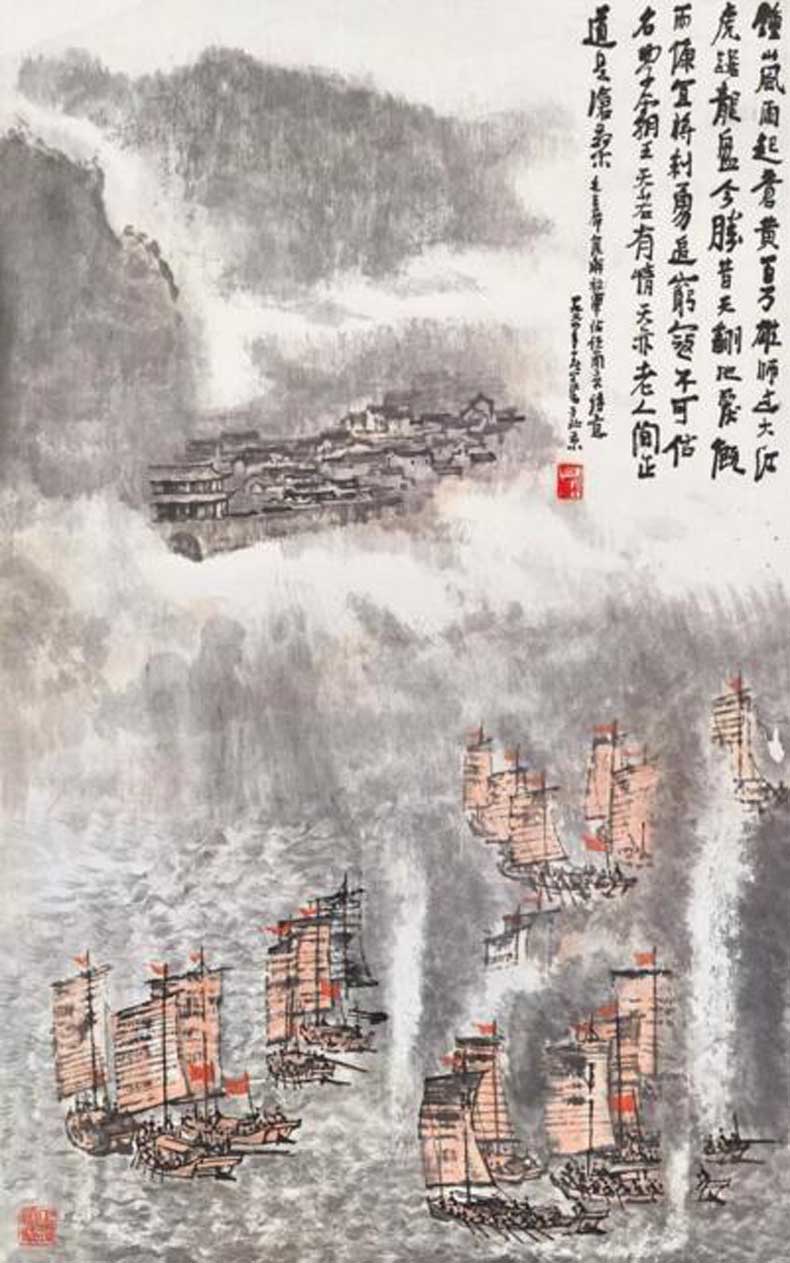 鍾山風雨起蒼黃百万雄師过大江
虎踞龍盘今勝昔天翻地覆慨
而慷宜將剩勇追窮寇不可沽
名學霸王天若有情天亦老人間正
道是滄桑 毛主席人民解放軍佔領南京詩意
北京